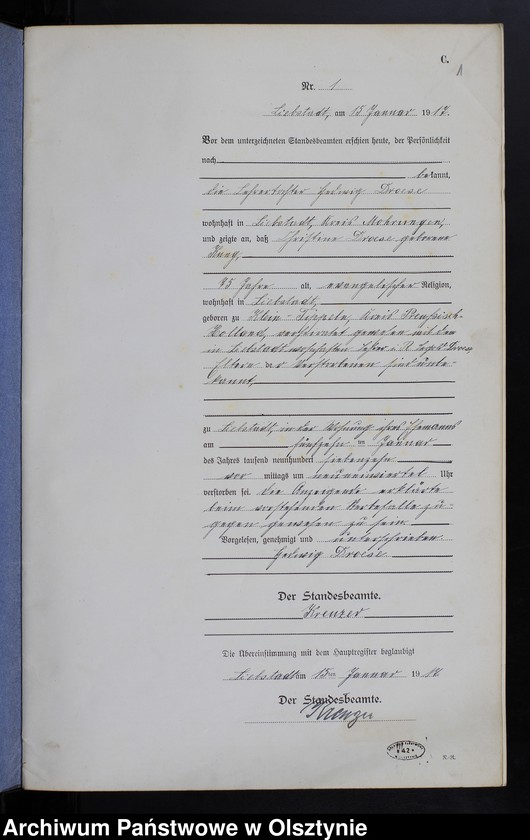 C.
1
Nr. 1
Liebstadt, am 15 Januar 1917.
Vor dem unterzeichneten Standesbeamten erschien heute, der Persönlichkeit
nach
bekannt,
die Lehrertochter Hedwig Droese
wohnhaft in Liebstadt, Kreis Mohrungen,
und zeigte an, daß Christine Droese geborene
85 Jahre alt, evangelischer Religion,
wohnhaft in Liebstadt,
geboren zu Klein-Tippeln, Kreis Preußisch-
Holland, verheiratet gewesen mit dem
in Liebstadt wohnhaften Lehrer a. D. Droese
Eltern der Verstorbenen sind unbe-
kannt,
zu Liebstadt, in der Wohnung ihres Ehemanns
am fünfzehn ten Januar
des Jahres tausend neunhundert siebenzehn
vor mittags um neuneinviertel Uhr
verstorben sei. Die Anzeigende erklärte
beim vorstehenden Sterbefalle zu-
gegen gewesen zu sein.
Vorgelesen, genehmigt und unterschrieben
Hedwig Droese
Der Standesbeamte.
Krenzer
Die Übereinstimmung mit dem Hauptregister beglaubigt
Liebstadt am 15ten Januar 1917.
Der Standesbeamte.
Krenzer
42
Archiwum Państwowe w Olsztynie